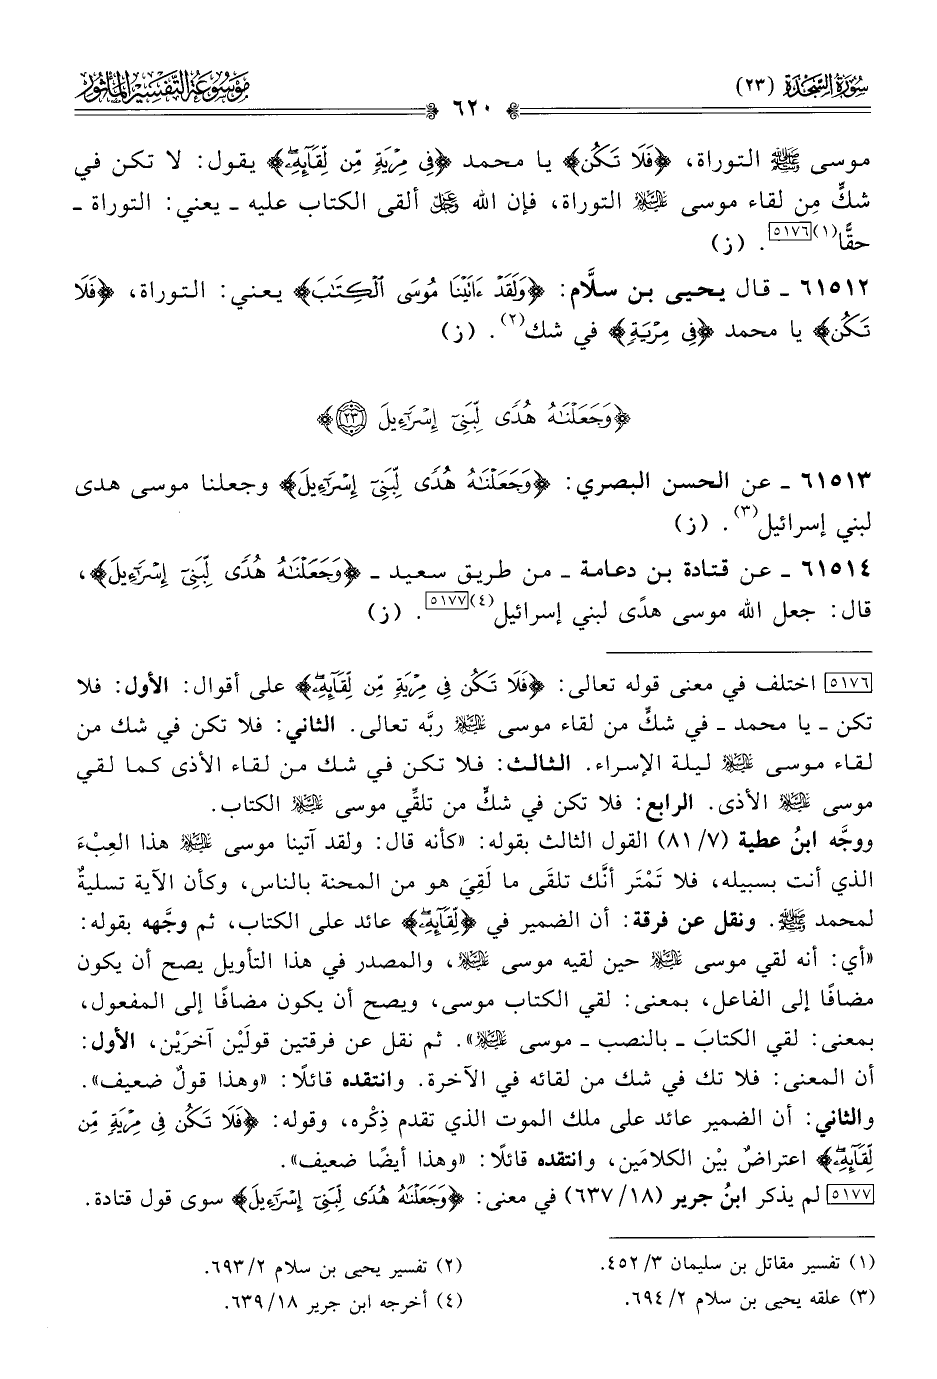 سُورَةُ السَّجْدَةِ (٢٣)
٦٢٠
مَوْسُوعَةُ التَّفْسِيرِ المَأْثُورِ
موسى ﷺ التوراة، ﴿فَلَا تَكُن﴾ يا محمد ﴿فِي مِرْيَةٍ مِّن لِّقَآئِهِۦ﴾ يقول: لا تكن في
شكٍّ مِن لقاء موسى عليه السلام التوراة، فإن الله عز وجل ألقى الكتاب عليه ـ يعني: التوراة ـ
حقًّا(١)[٥١٧٦]. (ز)
٦١٥١٢ ـ قال يحيى بن سلَّام: ﴿وَلَقَدْ ءَاتَيْنَا مُوسَى ٱلْكِتَٰبَ﴾ يعني: التوراة، ﴿فَلَا
تَكُن﴾ يا محمد ﴿فِي مِرْيَةٍ﴾ في شك(٢). (ز)
﴿وَجَعَلْنَٰهُ هُدًى لِّبَنِيٓ إِسْرَٰٓءِيلَ ٢٣﴾
٦١٥١٣ ـ عن الحسن البصري: ﴿وَجَعَلْنَٰهُ هُدًى لِّبَنِيٓ إِسْرَٰٓءِيلَ﴾ وجعلنا موسى هدى
لبني إسرائيل(٣). (ز)
٦١٥١٤ ـ عن قتادة بن دعامة ـ من طريق سعيد ـ ﴿وَجَعَلْنَٰهُ هُدًى لِّبَنِيٓ إِسْرَٰٓءِيلَ﴾،
قال: جعل الله موسى هدًى لبني إسرائيل(٤)[٥١٧٧]. (ز)
[٥١٧٦] اختلف في معنى قوله تعالى: ﴿فَلَا تَكُن فِي مِرْيَةٍ مِّن لِّقَآئِهِۦ﴾ على أقوال: الأول: فلا
تكن ـ يا محمد ـ في شكٍّ من لقاء موسى عليه السلام ربَّه تعالى. الثاني: فلا تكن في شك من
لقاء موسى عليه السلام ليلة الإسراء. الثالث: فلا تكن في شك من لقاء الأذى كما لقي
موسى عليه السلام الأذى. الرابع: فلا تكن في شكٍّ من تلقِّي موسى عليه السلام الكتاب.
ووجَّه ابنُ عطية (٧/ ٨١) القول الثالث بقوله: «كأنه قال: ولقد آتينا موسى عليه السلام هذا العِبْءَ
الذي أنت بسبيله، فلا تَمْتَر أنَّك تلقَى ما لَقِيَ هو من المحنة بالناس، وكأن الآية تسليةٌ
لمحمد ﷺ. ونقل عن فرقة: أن الضمير في ﴿لِّقَآئِهِۦ﴾ عائد على الكتاب، ثم وجَّهه بقوله:
«أي: أنه لقي موسى عليه السلام حين لقيه موسى عليه السلام، والمصدر في هذا التأويل يصح أن يكون
مضافًا إلى الفاعل، بمعنى: لقي الكتاب موسى، ويصح أن يكون مضافًا إلى المفعول،
بمعنى: لقي الكتابَ ـ بالنصب ـ موسى عليه السلام». ثم نقل عن فرقتين قولَيْن آخرَيْن، الأول:
أن المعنى: فلا تك في شك من لقائه في الآخرة. وانتقده قائلًا: «وهذا قولٌ ضعيف».
والثاني: أن الضمير عائد على ملك الموت الذي تقدم ذِكْره، وقوله: ﴿فَلَا تَكُن فِي مِرْيَةٍ مِّن
لِّقَآئِهِۦ﴾ اعتراضٌ بيْن الكلامَين، وانتقده قائلًا: «وهذا أيضًا ضعيف».
[٥١٧٧] لم يذكر ابنُ جرير (١٨/ ٦٣٧) في معنى: ﴿وَجَعَلْنَٰهُ هُدًى لِّبَنِيٓ إِسْرَٰٓءِيلَ﴾ سوى قول قتادة.
(١) تفسير مقاتل بن سليمان ٣/ ٤٥٢.
(٢) تفسير يحيى بن سلام ٢/ ٦٩٣.
(٣) علقه يحيى بن سلام ٢/ ٦٩٤.
(٤) أخرجه ابن جرير ١٨/ ٦٣٩.